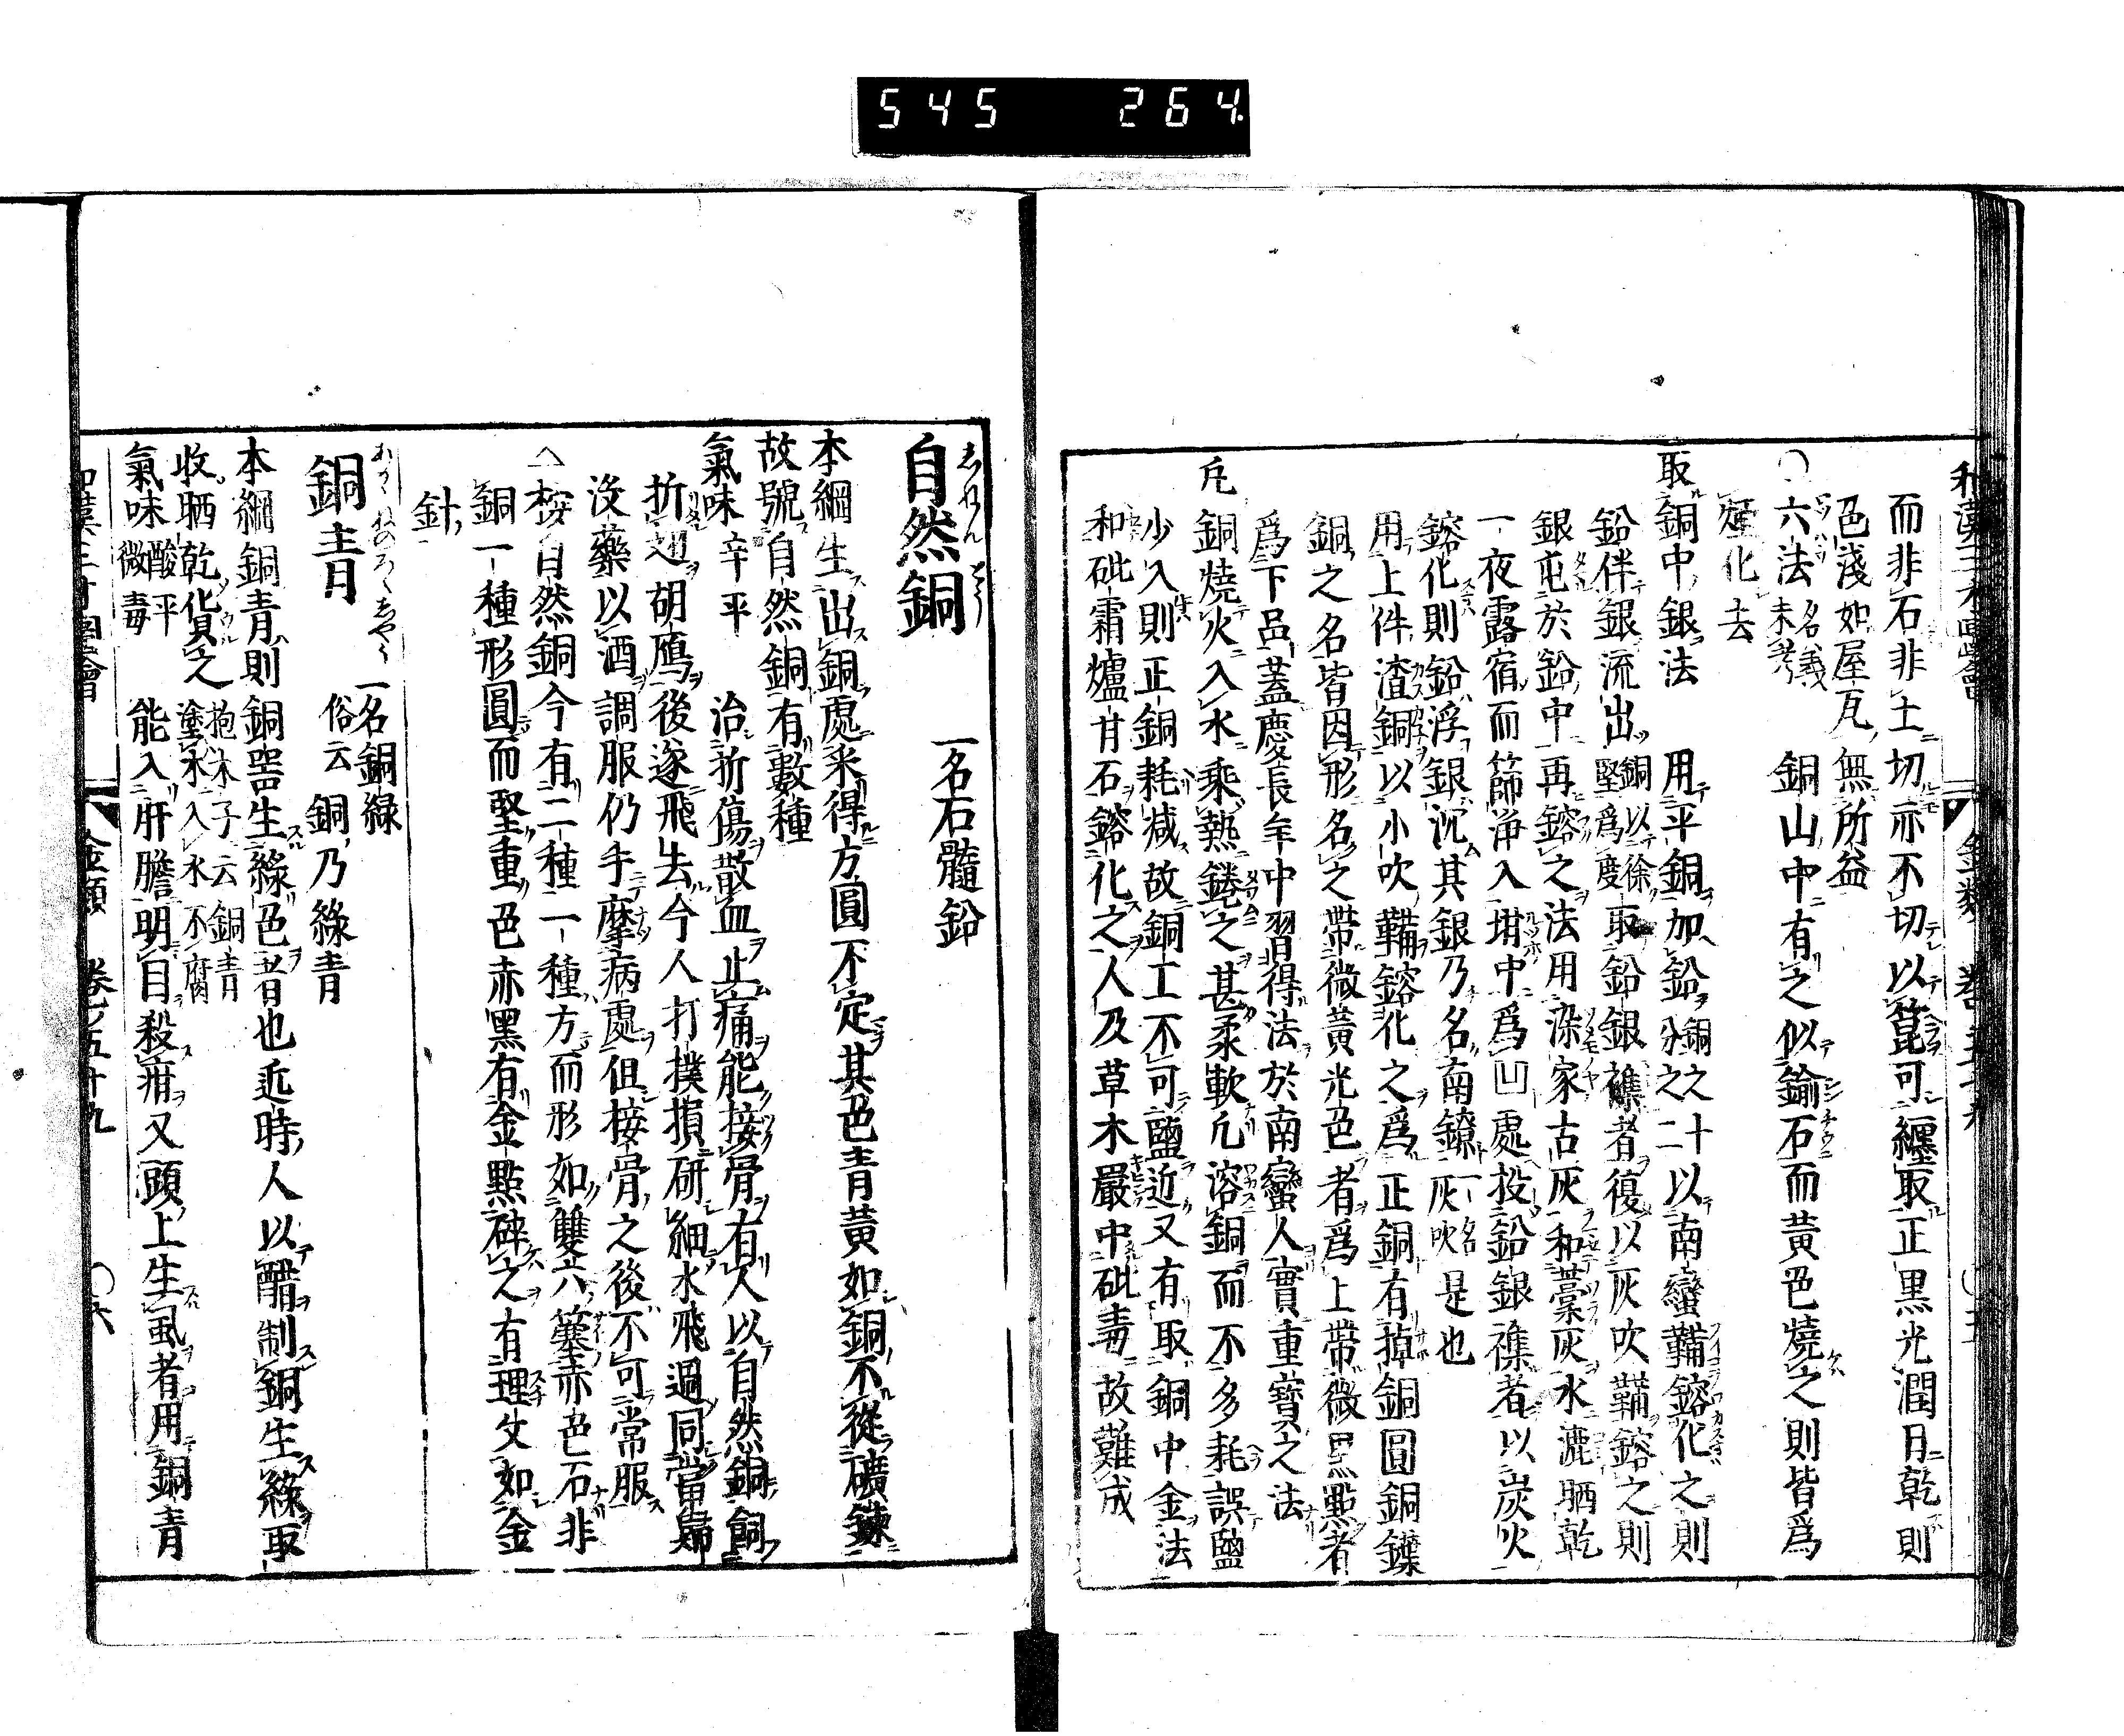 545 264
而非石非土切亦不切以箆可纒取正黒光潤月乾則
色淺如屋瓦無所益
〇六法 名義未考 銅山中有之似鍮石而黃色燒之則皆爲
煙化去
取銅中銀法 用平銅加鉛 銅之十分之二 以南蠻鞴鎔化之則
鉛伴銀流出 銅以徐堅爲度 取鉛銀襍者復以灰吹鞴鎔之則
銀屯於鉛中再鎔之法用染家古灰和藁灰水漉晒乾
一夜露宿而篩淨入坩中爲凹處投鉛銀襍者以炭火
鎔化則鉛浮銀沉其銀乃名南鐐 一名灰吹 是也
用上件渣銅以小吹鞴鎔化之爲正銅有掉銅圓銅鏶
銅之名皆因形名之帶微黃光色者爲上帶微黒點者
爲下品蓋慶長年中習得法於南蠻人實重寳之法
凡銅燒火入水乘熱錈之甚柔軟凡溶銅而不多耗誤鹽
少入則正銅耗減故銅工不可鹽近又有取銅中金法
和砒霜爐甘石鎔化之人及草木嚴中砒毒故難成
和漢三才圖會 金類 卷五十九 〇五
自然銅 一名石髓鉛
しねんどう
本綱生出銅處采得方圓不定其色青黃如銅不從礦鍊
故號自然銅有數種
氣味辛平 治折傷散血止痛能接骨有人以自然銅飼
折翅胡鴈後遂飛去今人打撲損研細水飛過同當歸
沒藥以酒調服仍手摩病處但接骨之後不可常服
△按自然銅今有二種一種方而形如雙六簺赤色石非
銅一種形圓而堅重色赤黒有金點碎之有理文如金
針
銅青 一名銅綠 俗云 銅乃綠青
あかゞねのろくしやう
本綱銅青則銅噐生綠色者也近時人以醋制銅生綠取
收晒乾化貨之 抱朴子云銅青塗木入水不腐
氣味 酸平微毒 能入肝膽明目殺疳又頭上生虱者用銅青
和漢三才圖會 金類 卷五十九 〇六